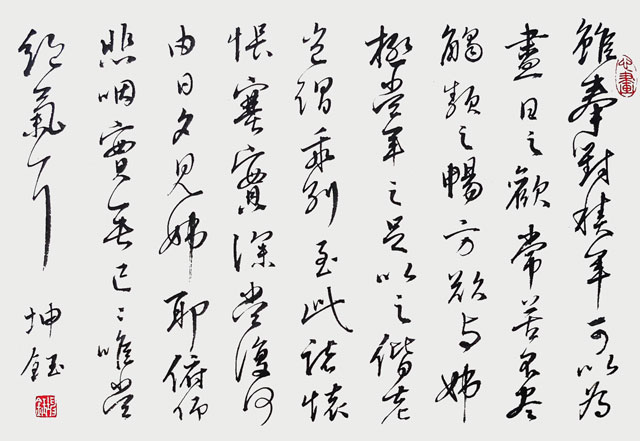 雖奉對積年可以為
盡日之歡常苦不盡
觸類之暢方欲與姊
極當年之足以之偕老
豈謂乖別至此諸懷
悵塞實深當復何
由日夕見姊耶俯仰
悲咽實無已〻唯當
絕氣耳
坤鈺
心畫